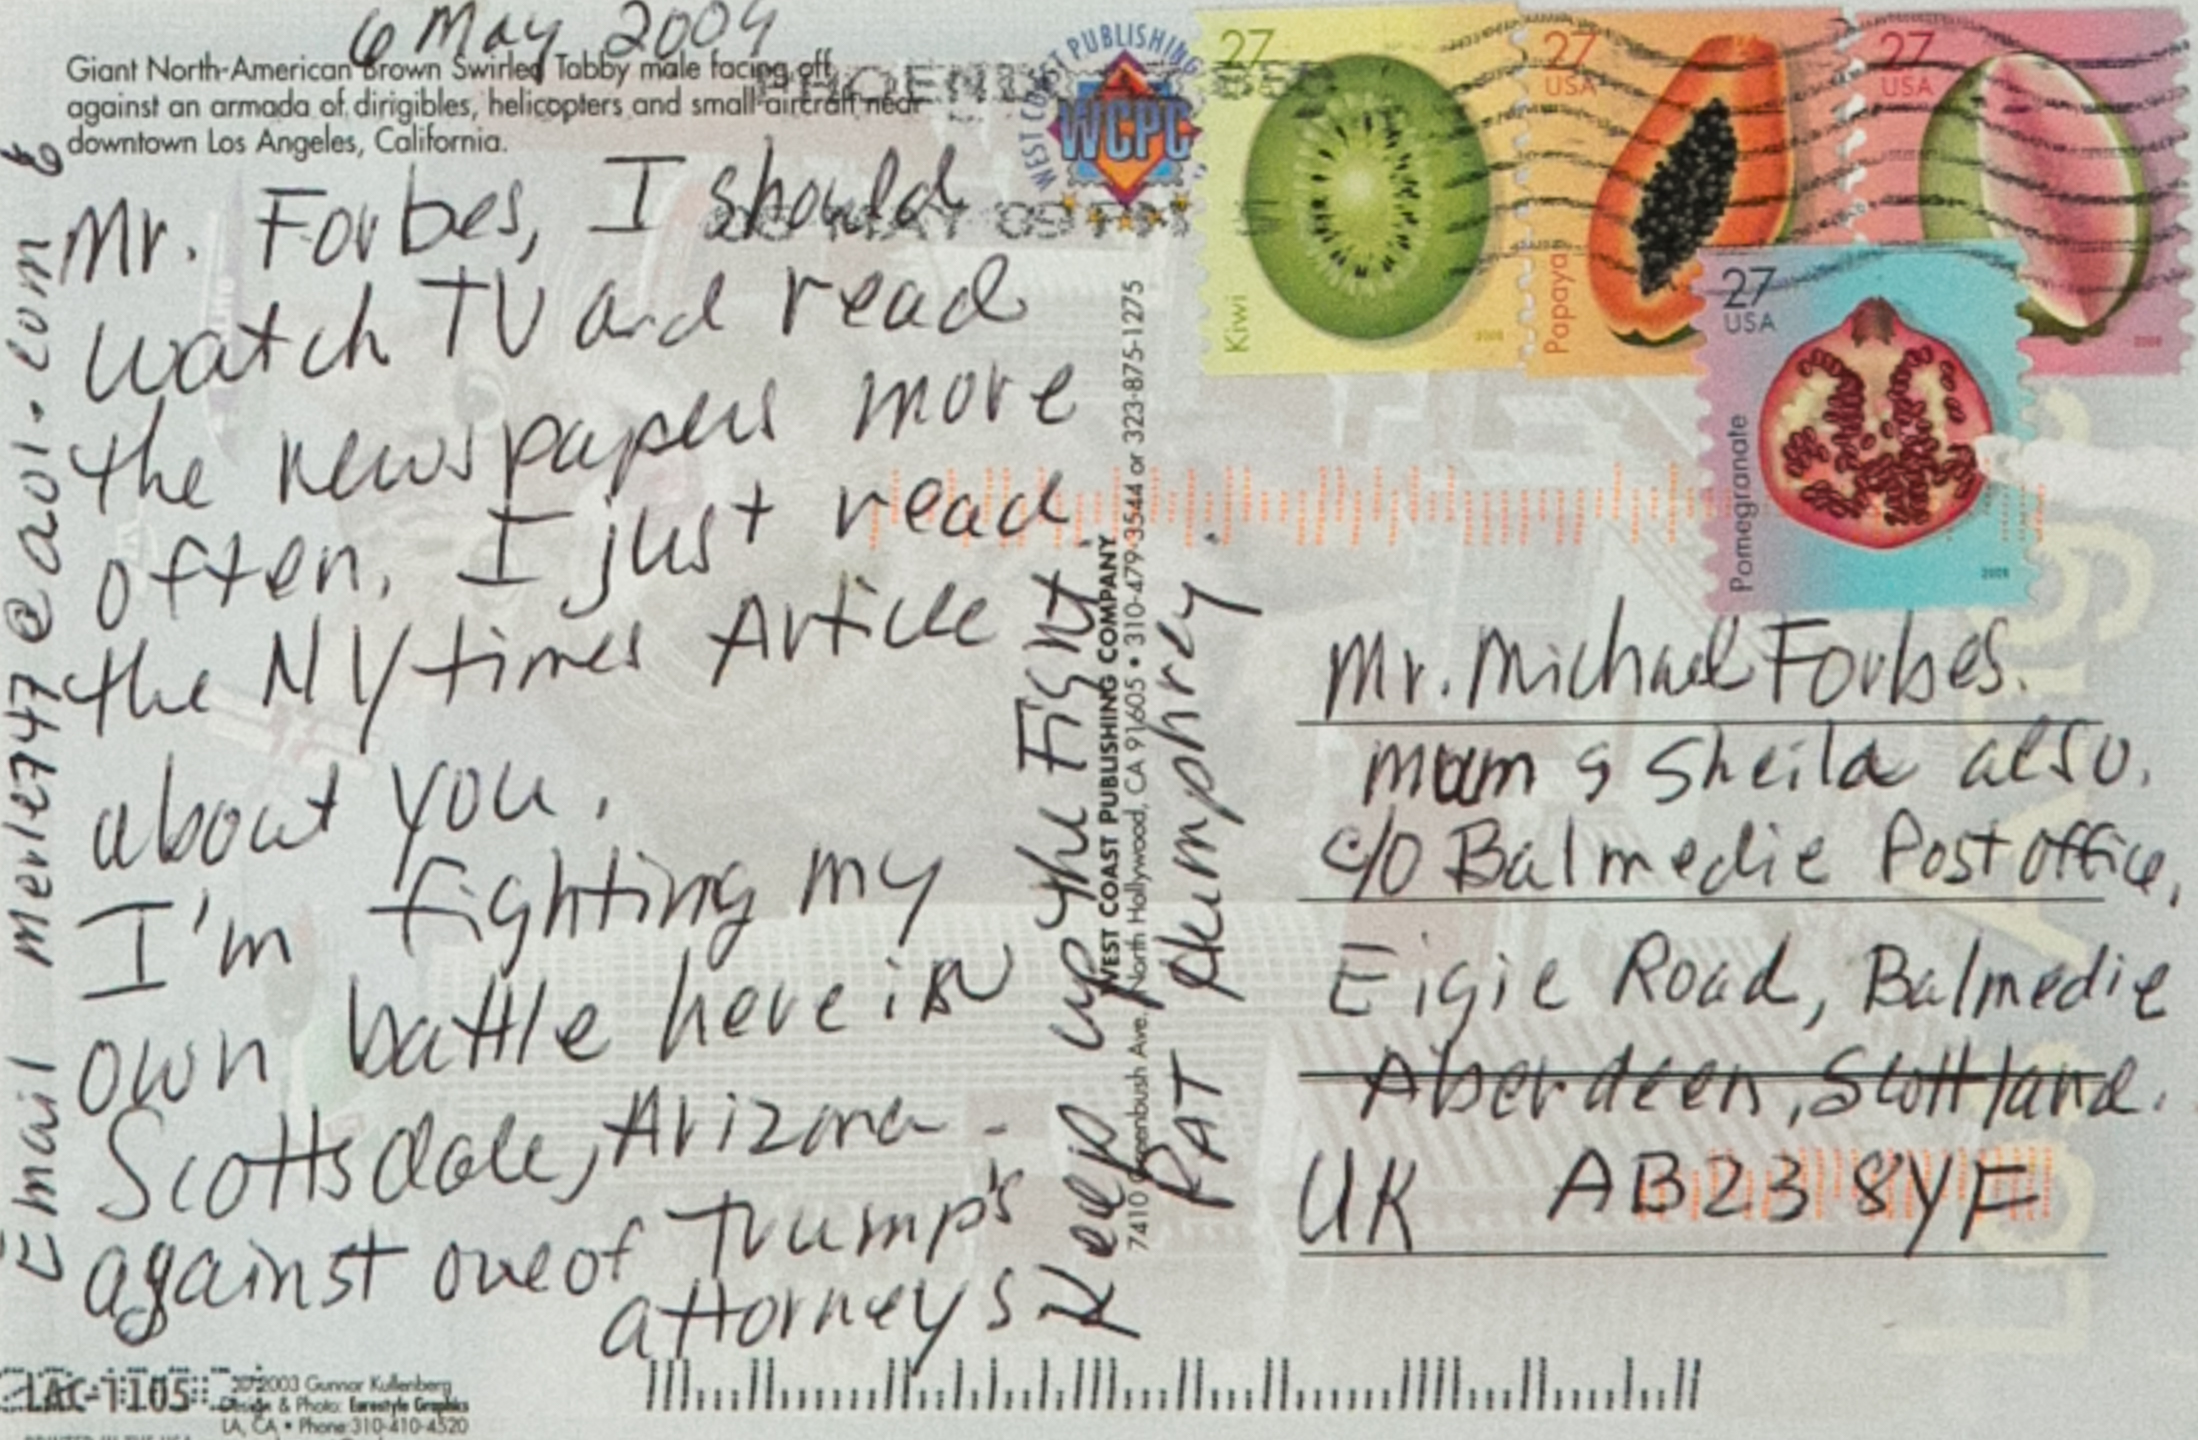 6 May 2009
Giant North-American Brown Swirled Tabby male facing off
against an armada of dirigibles, helicopters and small aircraft near
downtown Los Angeles, California.
Mr. Forbes, I should
watch TV and read
the newspapers more
often. I just read
the NY times Article
about you.
I'm fighting my
own battle here in
Scottsdale, Arizona -
against one of Trump's
attorneys
Keep up the Fight.
PAT Humphrey.
Email merle747@aol.com
WEST COAST PUBLISHING
WCPC
PHOENIX
MAY 09 PM
WEST COAST PUBLISHING COMPANY
7410 Greenbush Ave. North Hollywood, CA 91605 • 310-479-3544 or 323-875-1275
27
Kiwi
2008
27
USA
Papaya
27
USA
2008
27
USA
Pomegranate
2008
Mr. Michael Forbes.
Mum & Sheila also.
c/o Balmedie Post office,
Eigie Road, Balmedie
Aberdeen, Scottland.
UK AB23 8YF
LAC-1105
2003 Gunnar Kullenberg
Design & Photo: Eurostyle Graphics
LA, CA • Phone 310-410-4520
PRINTED IN THE USA